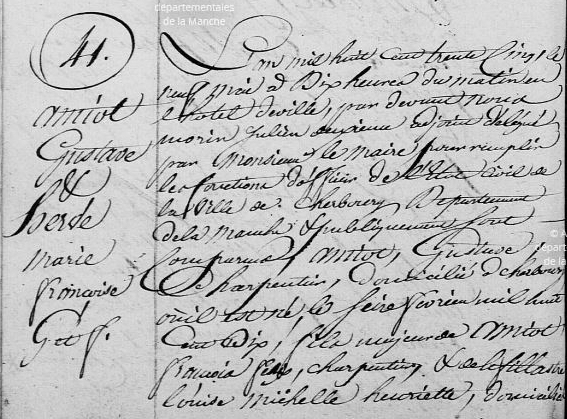 départementales
de la Manche
41.
amiot
Gustave
&
herde
marie
françoise
G et f.
L'an mil huit cent trente Cinq, le
neuf mai à Dix heures du matin en
l'hôtel deville, par devant nous
morin Julien deuxieme adjoint délégué
par Monsieur le Maire pour remplir
les fonctions d'officier de l'Etat Civil de
la Ville de Cherbourg Département
dela Manche & publiquement sont
Comparus amiot, Gustave,
charpentier, domicilié à cherbourg
où il est né, le seize février mil huit
Cent dix, fils majeur de amiot
françois, charpentier, & de
louise michelle henriette, domiciliés